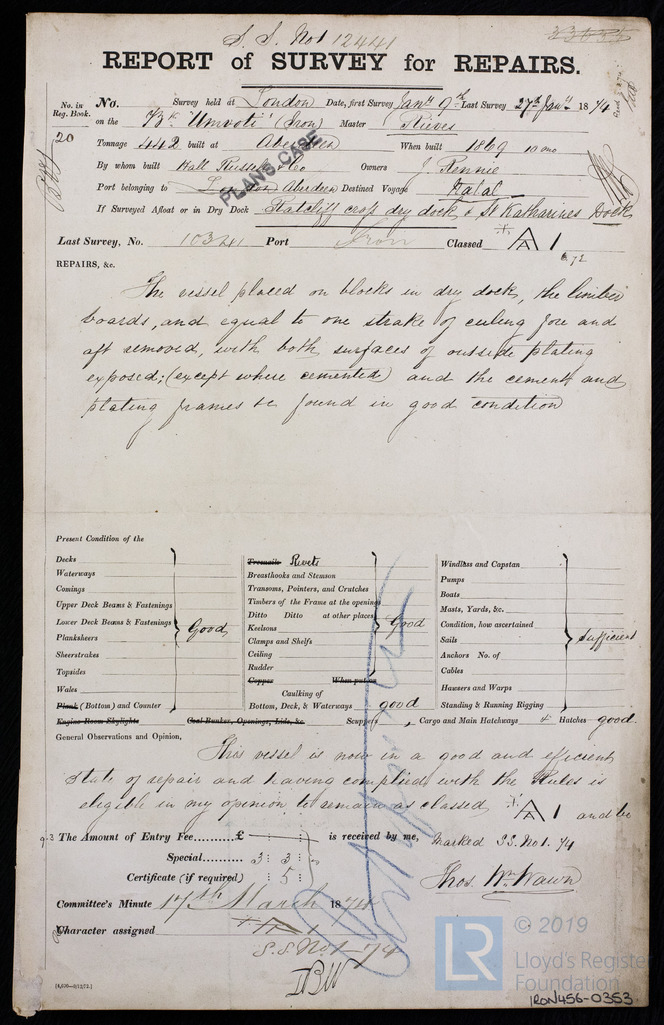 S. S. No 1 12441
REPORT of SURVEY for REPAIRS.
No. in Reg. Book. No. Survey held at London Date, first Survey Jany 9th Last Survey 27th Jany 1874
on the Bk "Umvoti" (Iron) Master Rieves
20 Tonnage 442 built at Aberdeen When built 1869 10 mo
By whom built Hall Russell & Co Owners J. Rennie
PLANS CASE
Port belonging to London Aberdeen Destined Voyage Natal
If Surveyed Afloat or in Dry Dock Ratcliff cross dry dock & St Katharines Dock
Last Survey, No. 10341 Port Iron Classed A 1
6.72
REPAIRS, &c.
The vessel placed on blocks in dry dock, the limber
boards, and equal to one strake of ceiling fore and
aft removed, with both surfaces of outside plating
exposed; (except where cemented) and the cement and
plating frames &c found in good condition
Present Condition of the
Decks
Waterways
Comings
Upper Deck Beams & Fastenings
Lower Deck Beams & Fastenings
Planksheers
Good
Sheerstrakes
Topsides
Wales
Plank (Bottom) and Counter
Engine Room Skylights Coal Bunker, Openings, Lids, &c.
Treenails Rivets
Breasthooks and Stemson
Transoms, Pointers, and Crutches
Timbers of the Frame at the openings
Ditto Ditto at other places
Keelsons
Good
Clamps and Shelfs
Ceiling
Rudder
Copper When put on
Caulking of
Bottom, Deck, & Waterways good
Windlass and Capstan
Pumps
Boats
Masts, Yards, &c.
Condition, how ascertained
Sails
sufficient
Anchors No. of
Cables
Hawsers and Warps
Standing & Running Rigging
Scuppers, Cargo and Main Hatchways & Hatches good.
General Observations and Opinion,
This vessel is now in a good and efficient
state of repair and having complied with the Rules is
eligible in my opinion to remain as classed A 1 and be
The Amount of Entry Fee.......... £ : : is received by me, marked S.S. No 1. 74
Special........ 3 : 3 :
Certificate (if required) : 5 :
Thos. Wm Wawn
Committee's Minute 17th March 1874
Character assigned A 1
S.S. No 1 - 74
[4,000—8/12/73.]
© 2019
LR
Lloyd's Register
Foundation
IRON456-0353